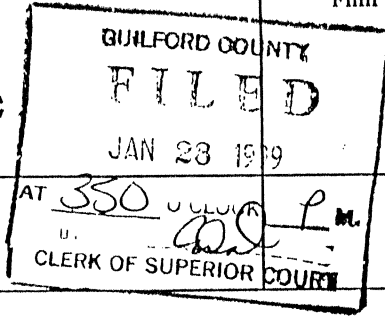 GUILFORD COUNTY
FILED
JAN 23
AT 350 O'CLOCK P M.
CLERK OF SUPERIOR COURT